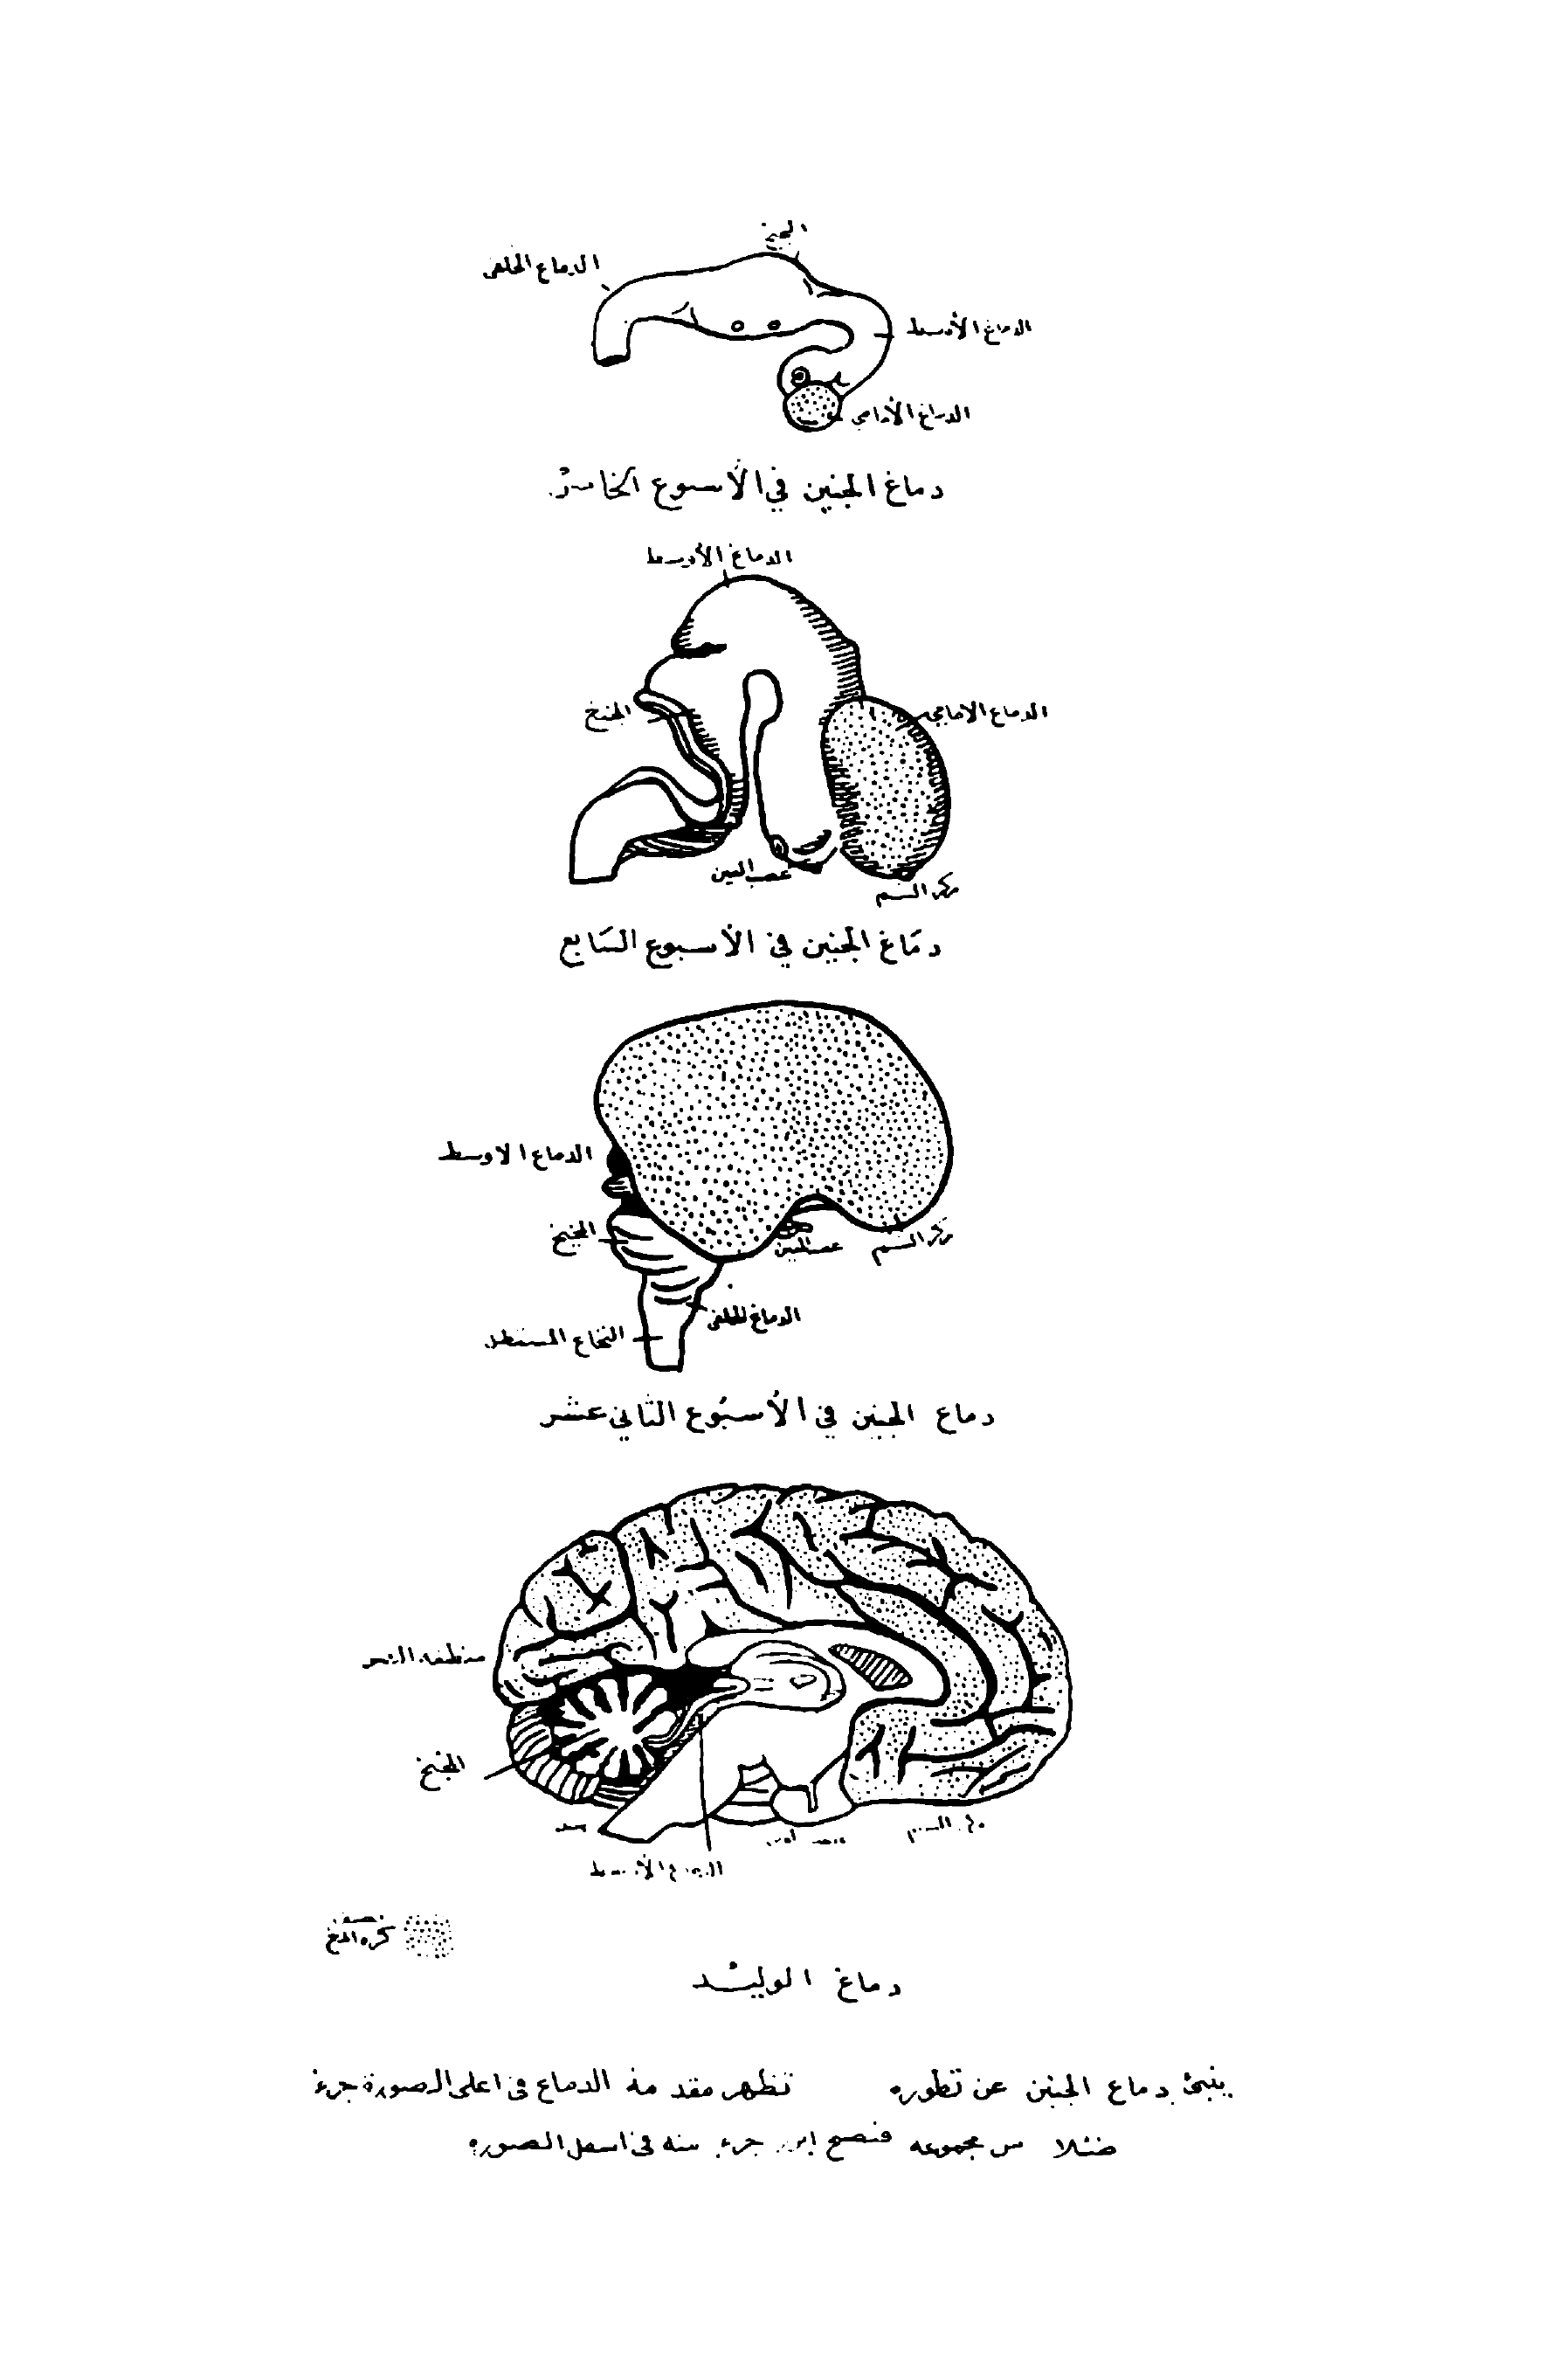 المخيخ
الدماغ الخلفي
الدماغ الأوسط
الدماغ الأمامي
دماغ الجنين في الأسبوع الخامس
الدماغ الأوسط
المخيخ
الدماغ الامامي
عصب العين
مركز الشم
دمَاغ الجنين في الأسبوع السَابع
الدماغ الاوسط
المخيخ
عصب العين
مركز الشم
الدماغ الخلفي
النخاع المستطيل
دماع الجنين في الأسبُوع الثاني عشر
منطقة البصر
المخيخ
مركز الشم
الدماغ الأوسط
نصف
كره المخ
دماغ الوليْد
ينبئ دماع الجنين عن تطوره تظهر مقدمة الدماع في اعلى الصورة جزء
ضئلا من مجموعه فتصبح اكبر جزء منه في اسفل الصوره